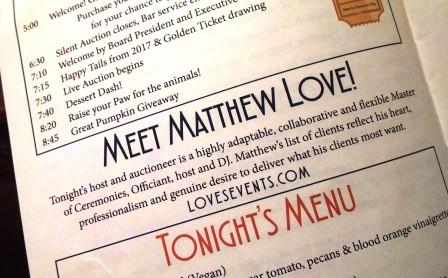 5:00 Welcome! G
Purchase you
for your chance to
6:30 Silent Auction closes, Bar service e
7:10 Welcome by Board President and Executive
7:15 Happy Tails from 2017 & Golden Ticket drawing
7:30 Live Auction begins
7:40 Dessert Dash!
8:20 Raise your Paw for the animals!
8:45 Great Pumpkin Giveaway
MEET MATTHEW LOVE!
Tonight's host and auctioneer is a highly adaptable, collaborative and flexible Master
of Ceremonies, Officiant, host and DJ. Matthew's list of clients reflect his heart,
professionalism and genuine desire to deliver what his clients most want.
LOVESEVENTS.COM
TONIGHT'S MENU
(Vegan)
ar tomato, pecans & blood orange vinaigrette